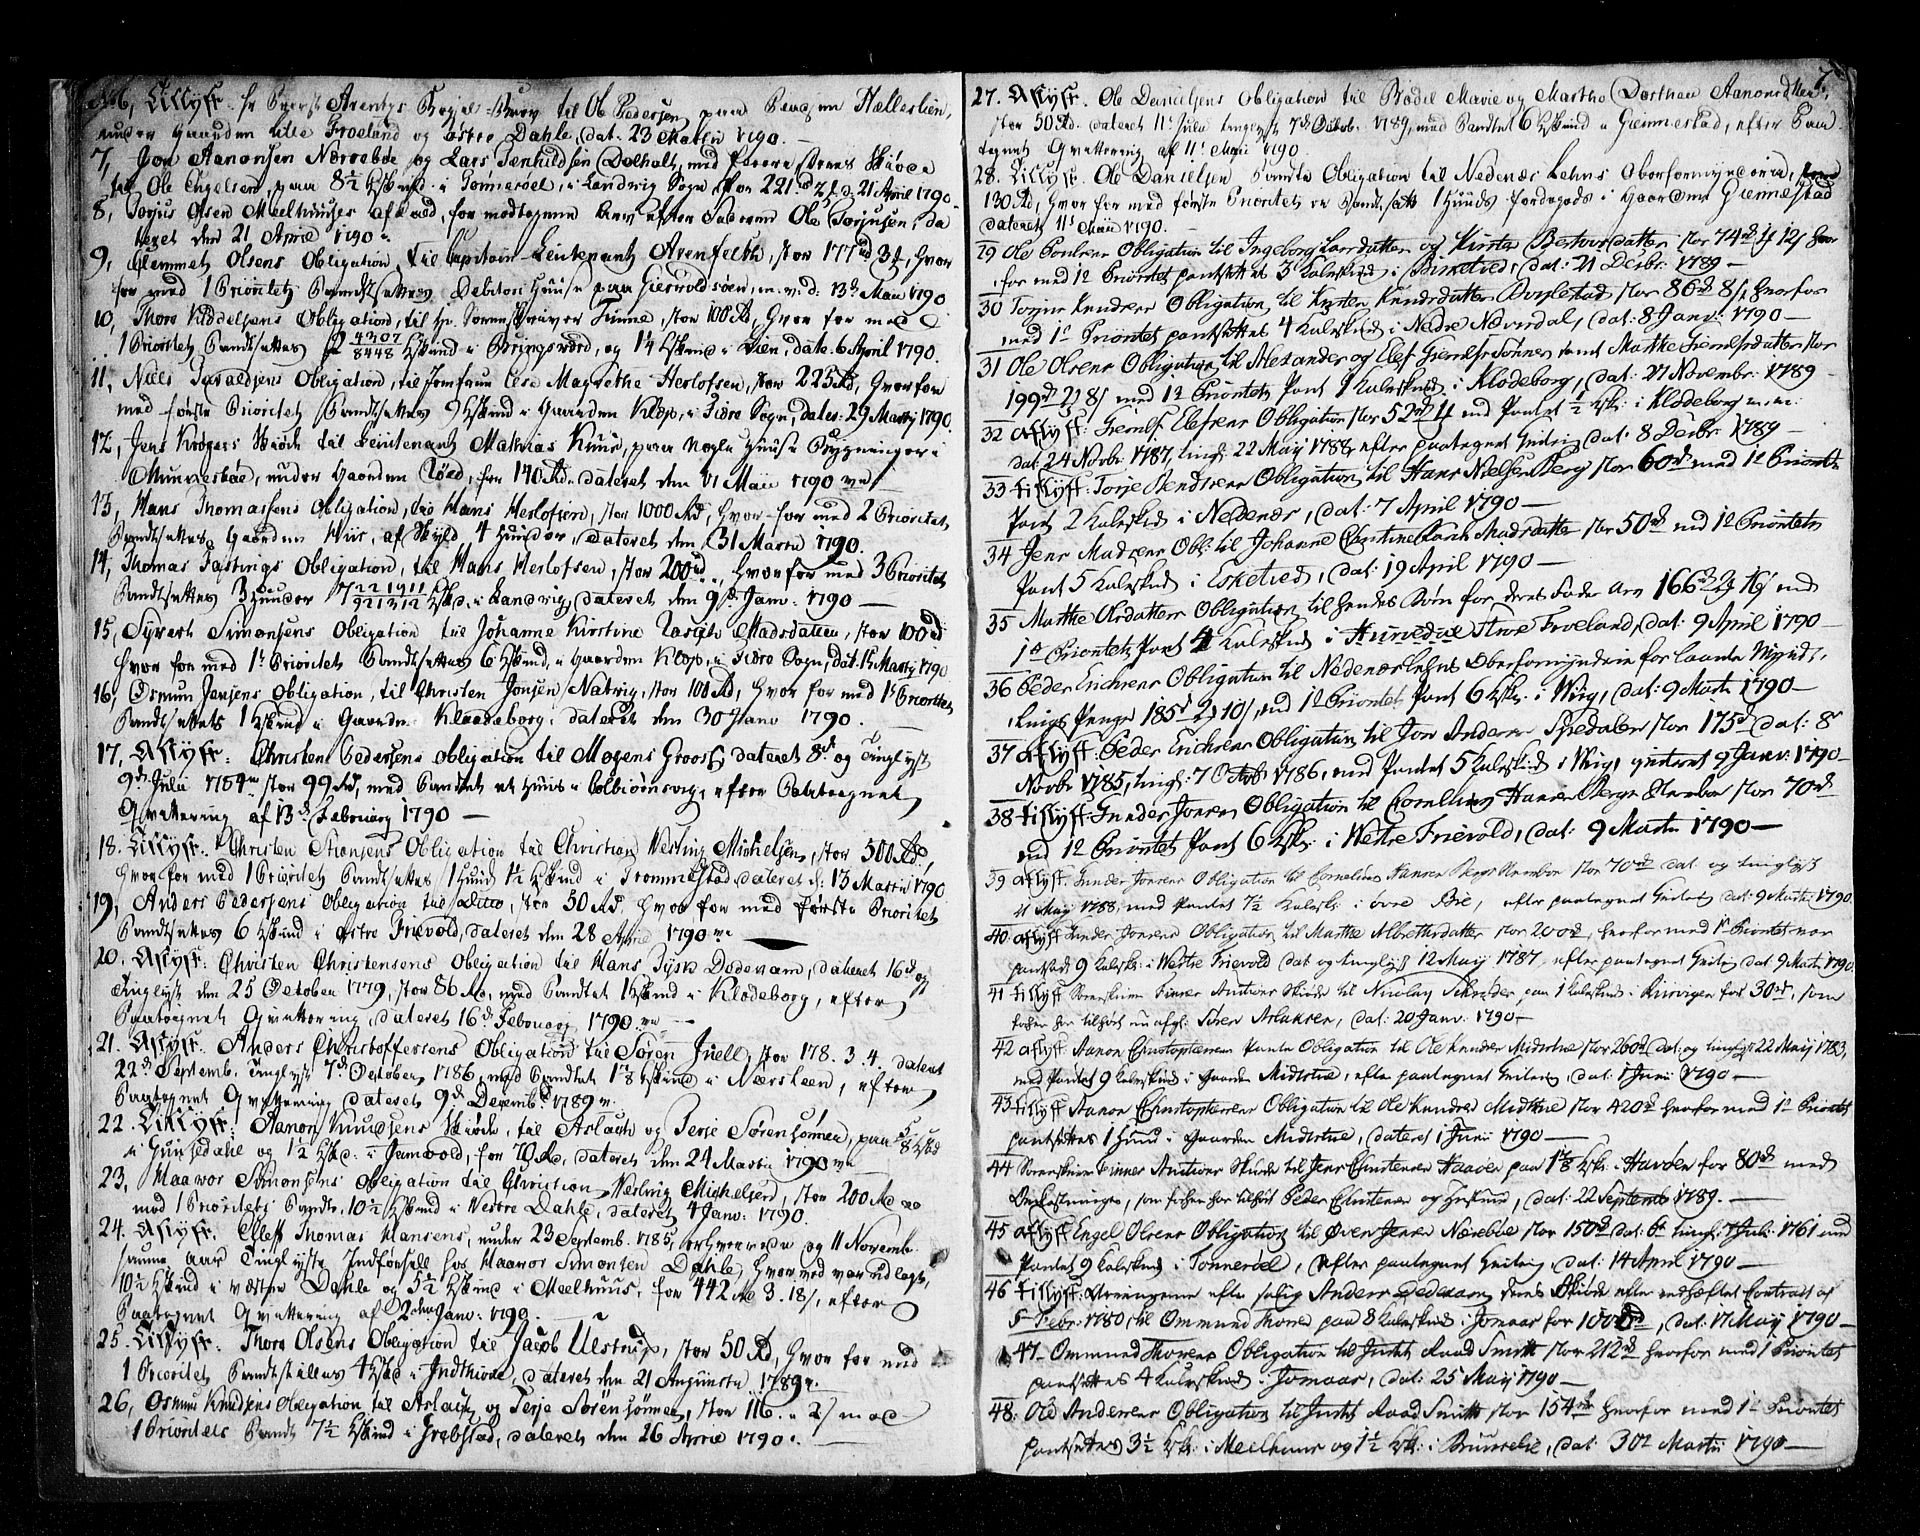 6, Tillyst. Hr Provst Arentzs Bygsel-Brev til Ole Pedersen paa Pladsen Hellerlien,
under Gaarden Lille Froeland og østre Dahle, dat. 23 Martii 1790.
7, Jon Aanonsen Nærreböe og Lars Tenhildsen Dolholt, med fleeres Skiöde
til Ole Engelsen, paa 8½ Kskind i Tönneröel, i Landvig Sogn, for 221 rd 21 April 1790.
8, Torjus Olsen Meelhuuses Afkald, for modtagne Arv efter Faderen Ole Torjusen, da
teret den 21 April 1790.
9, Clemmet Olsens Obligation til Capitain-Lieutenant Arenfeldt, stor 177 rd 3 , hvor
for med 1 Prioritet Pandtsættes Debitors Huuse paa Giervoldsöen, m. v. d: 13de Maii 1790
10, Thore Kiddelsens Obligation, til Hr. Sorenskriver Finne, stor 100 Rd, hvor for med
1 Prioritet Pandtsættes 2 4307/8448 Kskind i Bringsværd, og 1¼ Kskind i Vien, date. 6 April 1790.
11, Niels Tavaldsens Obligation, til Jomfrue Lise Magrethe Herlofsen, stor 225 Rd, hvor for
med förste Prioritet Pandtsættes 9 Kskind i Gaarden Klöp, i Fiære Sogn, dater: 29 Martij 1790.
12, Jens Krögers Skiöde til Lieutenant Mathias Kruse, paa nogle Huuse Bygninger i
Munnesböe, under Gaarden Löed, for 140 Rd. dateret den 11 Maii 1790
13, Hans Thomassens Obligation, til Hans Herlofsen, stor 1000 Rd, hvor for med 2 Prioritet
Pandtsættes Gaarden Wiir, af Skyld 4 Huuder, dateret den 31 Martii 1790.
14, Thomas Fastings Obligation, til Hans Herlofsen, stor 200 rd., hvorfor med 3 Prioritet
Pandtsættes 3 Huuder 7 221911/921312 Kskd. i Landvig, dateret den 9de Janv: 1790 —
15, Syvert Simonsens Obligation til Johanne Kirstine Madsdatter, stor 100 rd
hvor for med 1te Prioritet Pandtsættes 6 Kskind, i Gaarden Klöp, i Fiære Sogn, dat. 15 Martij 1790
16, Osmun Jensens Obligation, til Christen Jonsen Natvig, stor 100 Rd, hvor for med 1te Prioritet
Pandtsættes 1 Kskind i Gaarden Klaadeborg. dateret den 30 Janv 1790.
17, Aflyst. Christen Pedersens Obligation til Mogens Groos, dateret 8de og Tinglyst
9de Julii 1784 stor 99 Rd, med Pandtet et Huus i Colbiörnsvig, efter Paategnet
Qvittering af 13de Februarij 1790 —
18. Tillyst. Christen Stionsens Obligation til Christian Wesling Michelsen, stor 500 Rd,
hvor for med 1 Prioritet Pandtsættes 1 Huud 1½ Kskind i Trommestad, dateret d: 13 Martii 1790
19, Anders Pedersens Obligation til Ditto, stor 50 Rd, hvor for med förste Prioritet
Pandtsættes 6 Kskind i östre Frievold, dateret den 28 April 1790
20. Aflyst: Christen Christensens Obligation til Hans Tysk Dodevam, dateret 16de og
Tinglyst den 25 October 1779, stor 86 Rd, med Pandtet 1 Kskind i Klodeborg, efter
Paategnet Qvittering, dateret 16de Februarij 1790.
21. Aflyst. Anders Christoffersens Obligation til Sören Juell, stor 178. 3. 4. dateret
22de Septemb. Tinglyst 7de October 1786, med Pandtet 1 1/8 Kskind i Nærsteen, efter
Paategnet Qvittering dateret 9de Decembr 1789.
22. Tillyst: Aanon Knudsens Skiöde, til Aslach og Terje Sörensönner, paa 5/8 Kskd
i Gunsedahl og 1½ Kskd. i Jamvold, for 70 Rd, dateret den 24 Martii 1790
23, Haavor Simonsens Obligation til Christian Wesling Michelsen, stor 200 Rd
med 1 Prioritets Pandt, 10½ Kskind i Vestre Dahle, dateret 4 Janv: 1790.
24. Aflyst. Eleff Thomas Hansens, under 23 Septemb. 1785, erhvervede og 11 Novemb.
samme Aar Tinglyste Indförsell hos Haavor Simonsen Dahle, hvor ved var udlagt,
10½ Kskind i vester Dahle og 5½ Kskind i Meelhuus, for 442 Rd 3. 18/, efter
Paategnet Qvittering af 2den Janv: 1790.
25. Tillyst. Thore Olsens Obligation til Jacob Ulstrup, stor 50 Rd, hvor for med
1 Prioritet Pandtstilles 4 Kskd i Indthiore, dateret den 21 Augusta 1789.
26, Osmun Knudsens Obligation til Aslach og Terje Sörensönner, stor 116. " 2/ med
1 Prioritets Pandt 7½ Kskind i Grebstad, dateret den 26 April 1790.
7
27. Aflyst. Ole Danielsens Obligation til Bodil Marie og Martha Dorthea Aanonsdtter,
stor 50 Rd. dateret 11te Julii tinglyst 7de Octob. 1789, med Pandtet 6 Kskind i Giennestad, efter Paa
tegnet Qvittering af 11te Maii 1790.
28. Tillyst. Ole Danielsen Pandte Obligation til Nedenæs Lehns Oberformynderie, stor
130 Rd, hvor for med förste Prioritet er Pandtsatt 1 Huuds Jordegods i Gaarden Giennestad
dateret 11te Maii 1790.
29 Ole Poulsens Obligation til Ingeborg Larsdatter og Kirsten Bertousdatter stor 74 rd 1 12/ hvor
for med 1te Prioritet pantsættes 3 Kalvskind i Birketved, dat: 21 Decbr: 1789 —
30 Torjus Knudsens Obligation til Kirsten Knudsdatter Boylestad stor 86 rd 8/, hvorfor
med 1te Prioritet pantsættes 4 Kalvskind i Nedre Næverdal, dat: 8 Janv: 1790 —
31 Ole Olsens Obligation til Alexander og Elef Gierulfs Sönner samt Marthe Gierulfsdatter stor
199 rd 2 8/ med 1te Prioritet Pant 9 Kalvskind i Klodeborg, dat: 27 Novembr: 1789 —
32 aflyst: Gierulf Elefsens Obligation stor 52 rd med Pantet ½ Ksk: i Klodeborg m.m:
dat. 24 Novbr. 1787, tingl: 22 May 1788, efter paategnet Qvitering dat: 8 Decbr: 1789 —
33 tillyst: Torje Bendtsens Obligation til Hans Nielsen Berg stor 60 rd med 1te Prioritets
Pant 2 Kalvskind i Nedenæs, dat: 7 April 1790 —
34 Jens Madsens Obl: til Johanne Christine Madsdatter stor 50 rd med 1te Prioritets
Pant 5 Kalvskind i Esketved, dat: 19 April 1790 —
35 Marthe Olsdatters Obligation til hendes Börn for deres Fader Arv 166 rd 2 16/ med
1te Prioritets Pant 4 Kalvskind i Store Froeland, dat: 9 April 1790 —
36 Peder Erichsens Obligation til Nedenæs Lehns Oberformynderie for laante Mynd-
lings Penge 185 rd 2 10/, med 1te Prioritets Pant 6 Ksk: i Wiig, dat: 9 Martii 1790 —
37 aflyst: Peder Erichsens Obligation til Jon Andersen Spedalen stor 175 rd dat: 8
Novbr 1785, tingl: 7 Octobr 1786, med Pantet 5 Kalvskind i Wiig, qviteret 9 Janv: 1790 —
38 tillyst: Gunder Jonsens Obligation til Cornelius Hansen Berge stor 70 rd
med 1te Prioritets Pant 6 Ksk: i Westre Frievold, dat: 9 Martii 1790 —
39 aflyst: Gunder Jonsens Obligation til Cornelius Hansen Berge stor 70 rd dat og tinglyst
21 May 1788, med Pantet 7½ Kalvsk: i övre Bie, efter paategnet Qvitering dat: 9 Martii 1790
40 aflyst Gunder Jonsens Obligation til Marthe Albretsdatter stor 200 rd, hvorfor med 1te Prioritet var
pantsat 9 Kalvsk: i Westre Frievold dat og tinglyst 12 May 1787, efter paategnet Qvitering dat: 9 Martii 1790.
41 tillyst Sorenskriver Finnes Auctions Skiöde til Nicolay Schröder paa 1 Kalvskind i Kurvigen for 30 rd, som
forhen har tilhört nu afgl: Sören Aslaksen, dat: 20 Janv: 1790 —
42 aflyst Aanon Christophersens Pante Obligation til Ole Knudsen Midstue stor 260 rd dat: og tinglyst 22 May 1783,
med Pantet 9 Kalvskind i Gaarden Midstue, efter paategnet Qvitering, dat: 1 Junii 1790 —
43 tillyst Aanon Christophersens Obligation til Ole Knudsen Midstue stor 420 rd hvorfor med 1te Prioritet
pantsættes 1 Huud i Gaarden Midstue, dateret 1 Junii 1790 —
44 Sorenskriver Finnes Auctions Skiöde til Jens Christensen Haaöen paa 1 1/8 Ksk: i Havöen for 80 rd med
Omkostninger, som forhen har tilhört Peder Christensen og Hustrue, dat: 22 Septemb 1789. —
45 aflyst Engel Olsens Obligation til Even Jensen Næreböe stor 150 rd dat: 6 tingl: 7 Juli 1761 med
Pantet 9 Kalvskind i Tönneröel, efter paategnet Qvitering, dat: 14 April 1790 —
46 tillyst: Arvingerne efter salig Anders Pedersen, deres Skiöde efter vedhæftet Contract af
5 Febr: 1780, til Ommund Thores paa 8 Kalvskind i Jomaas for 1000 rd, dat: 17 May 1790 —
47 Ommund Thores Obligation til Justits Raad Smith stor 212 rd hvorfor med 1 Prioritet
pantsættes 4 Kalvskind i Jomaas, dat: 25 May 1790 —
48: Ole Andersens Obligation til Justits Raad Smith stor 154 rd hvorfor med 1te Prioritet
pantsættes 3½ Ksk: i Meelhuus og 1½ Ksk: i Bruusele, dat: 30te Martii 1790 —